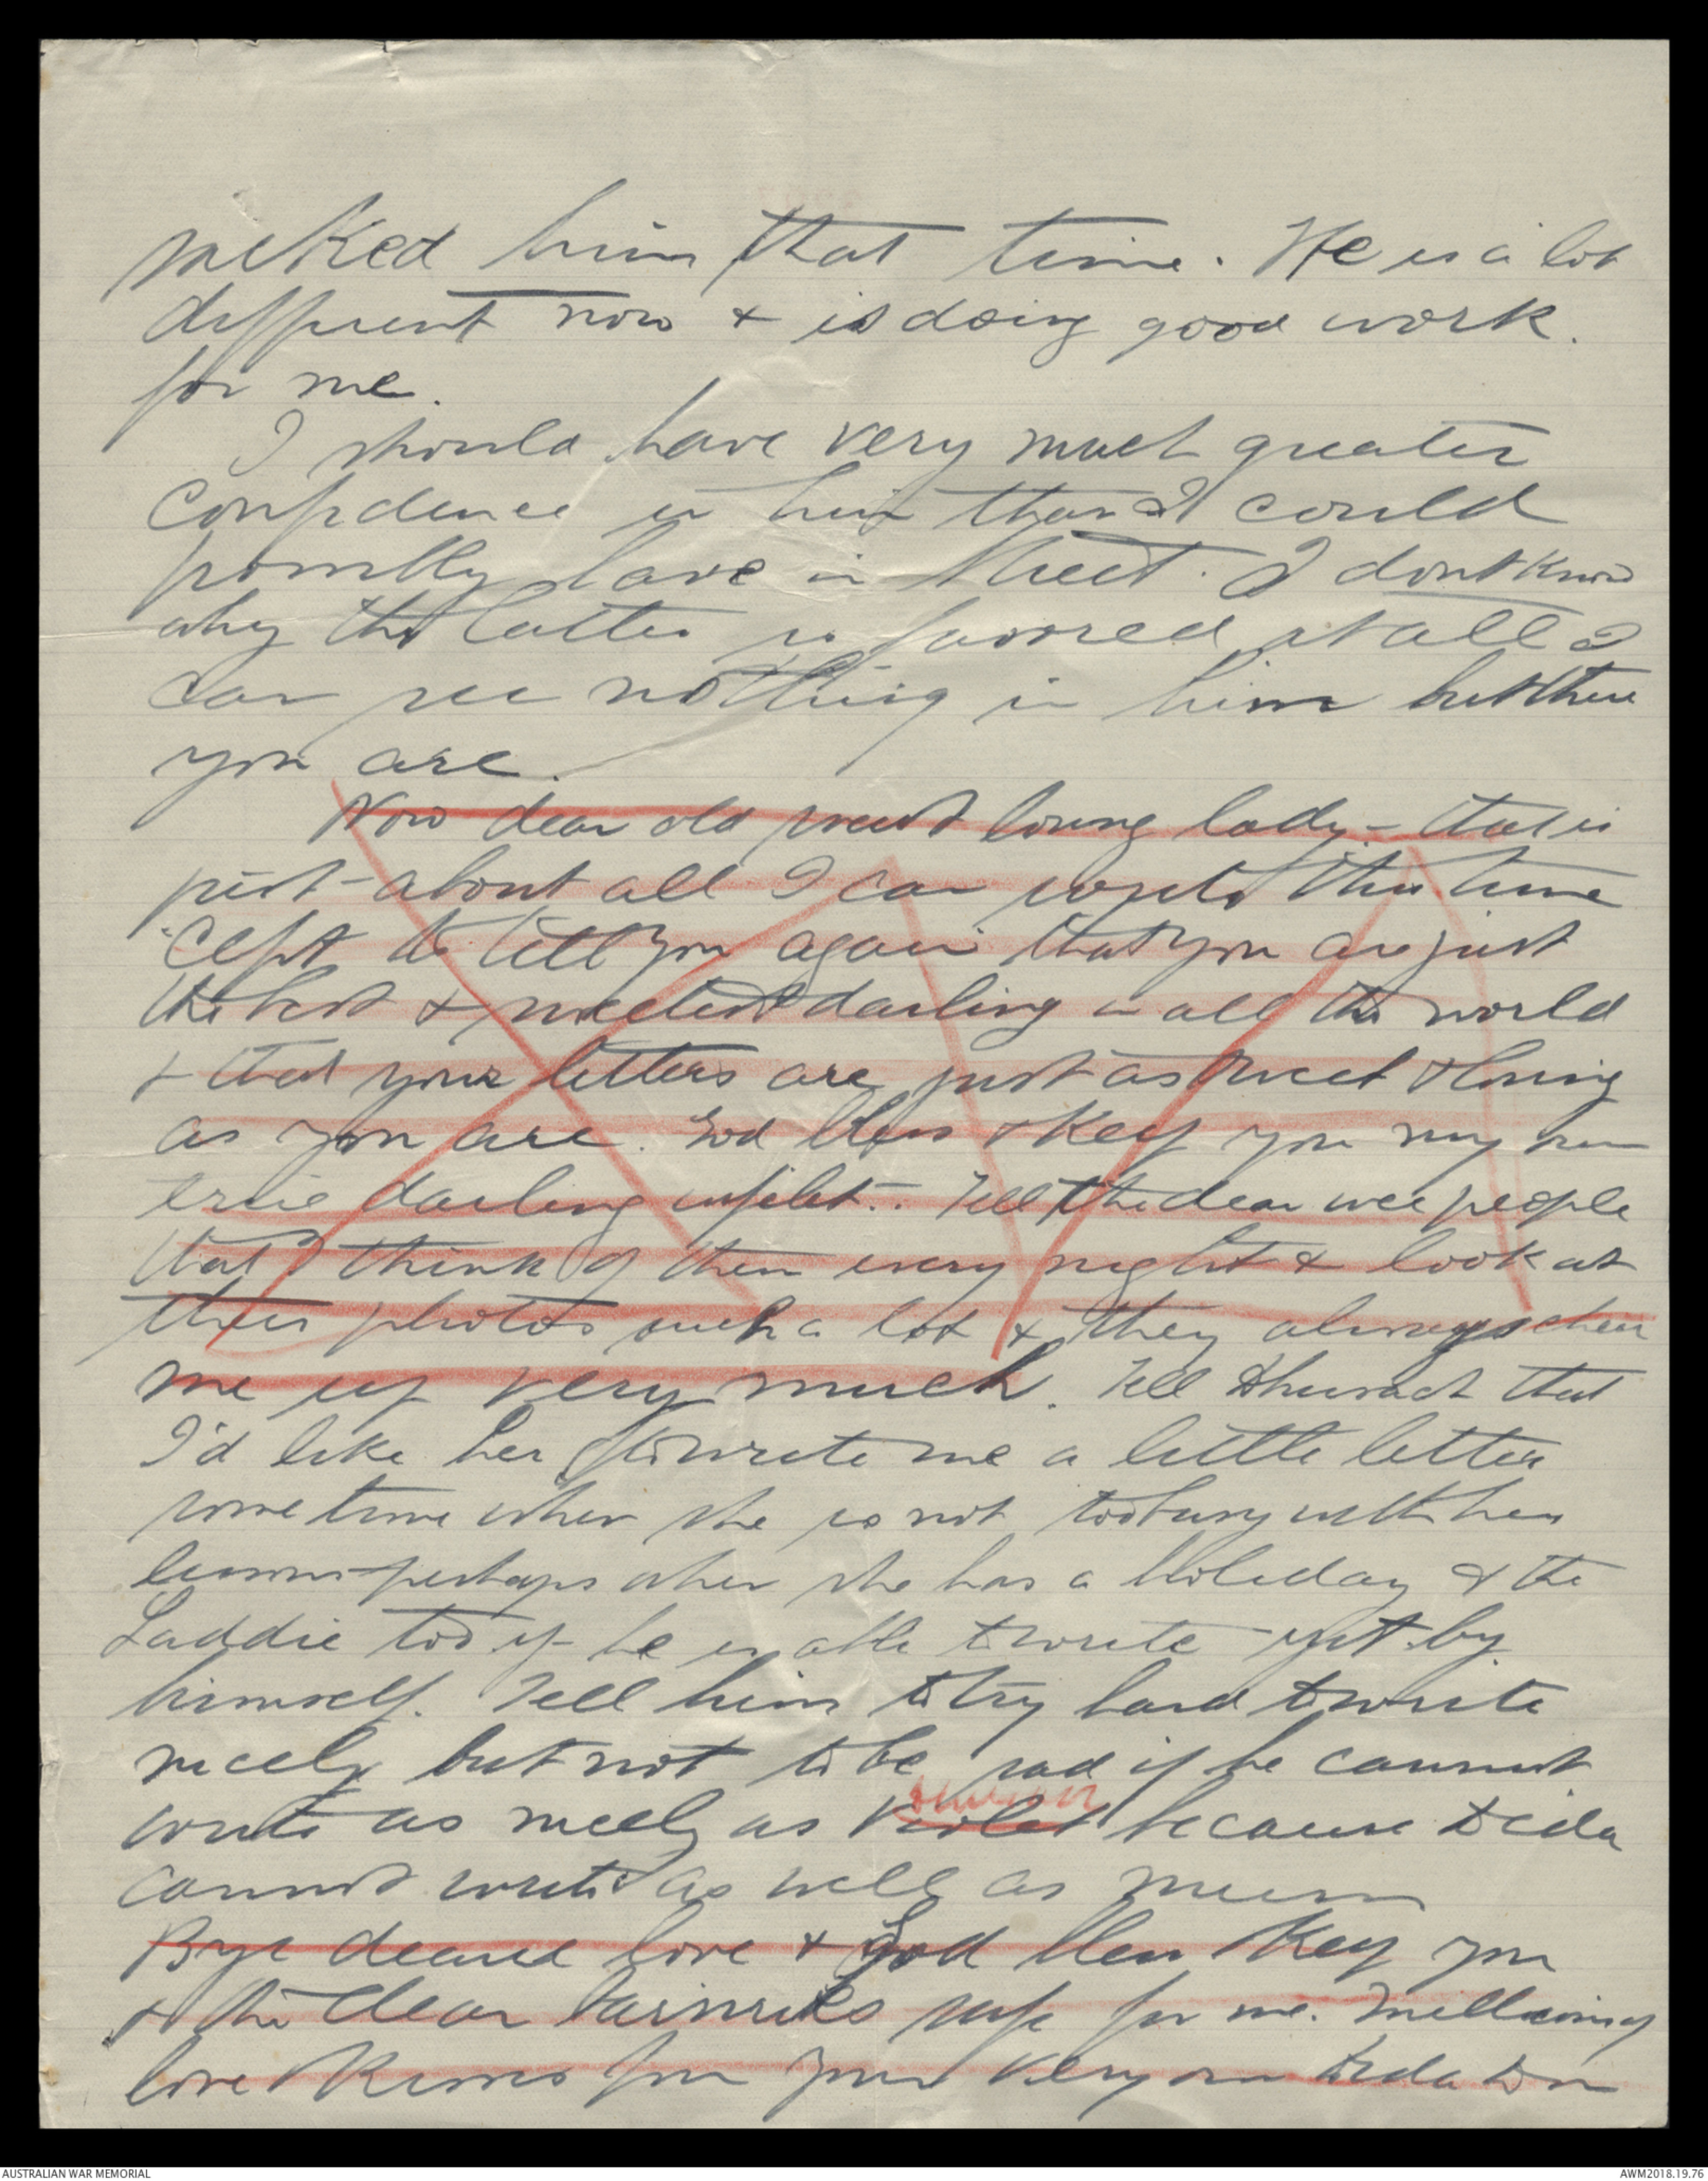 picked him that time. He is a lot
different now & is doing good work.
for me.
I should have very much greater
confidence in him than I could
possibly have in Street. I dont know
why the latter is favored at all I
can see nothing in him but there
you are.
Now dear old sweet loving lady - that is
just about all I can write this time
'cept to tell you again that you are just
the best & sweetest darling in all the world
& that your letters are just as sweet & loving
as you are. God bless & keep you my own
true darling wifelet.. Tell the dear wee people
that I think of them every night & look at
their photos such a lot & they always cheer
me up very much. Tell that
I'd like her to write me a little letter
some time when she is not too busy with her
lessons - perhaps when she has a holiday & the
Laddie too if he is able to write yet by
himself. Tell him to try hard to write
nicely but not to be sad if he cannot
write as nicely as Violet because Dida
cannot write as well as mum
Bye dearest love & God bless & keep you
& the dear bairnies safe for me. Mills
love & kisses from your very own Dida
AUSTRALIAN WAR MEMORIAL
AWM2018.19.76